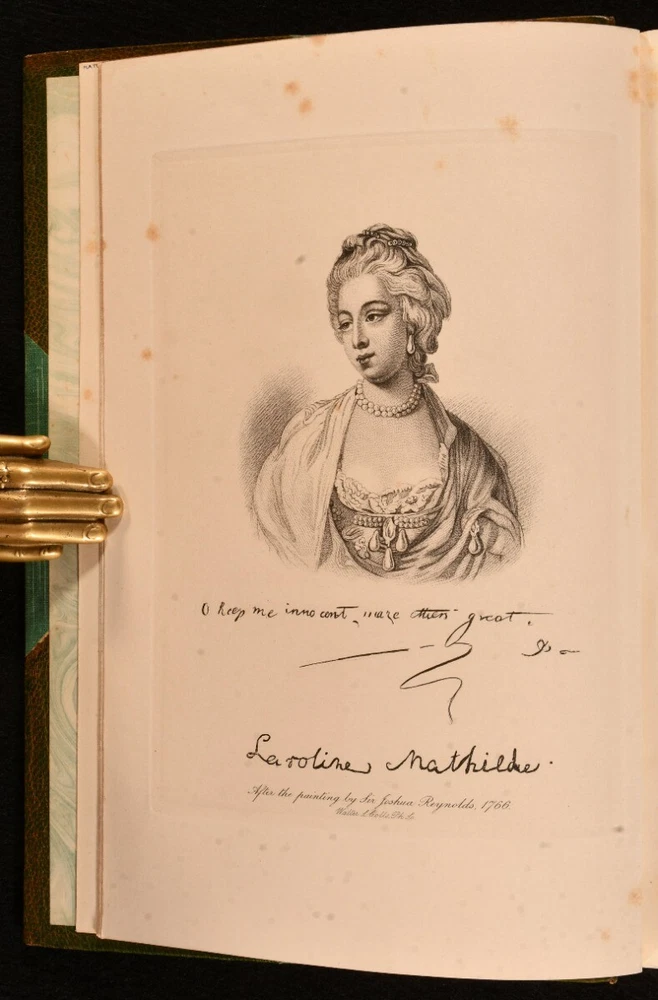 O keep me innocent, make others great.
Caroline Mathilde.
After the painting by Sir Joshua Reynolds, 1766.
Walter L. Colls, Ph. Sc.